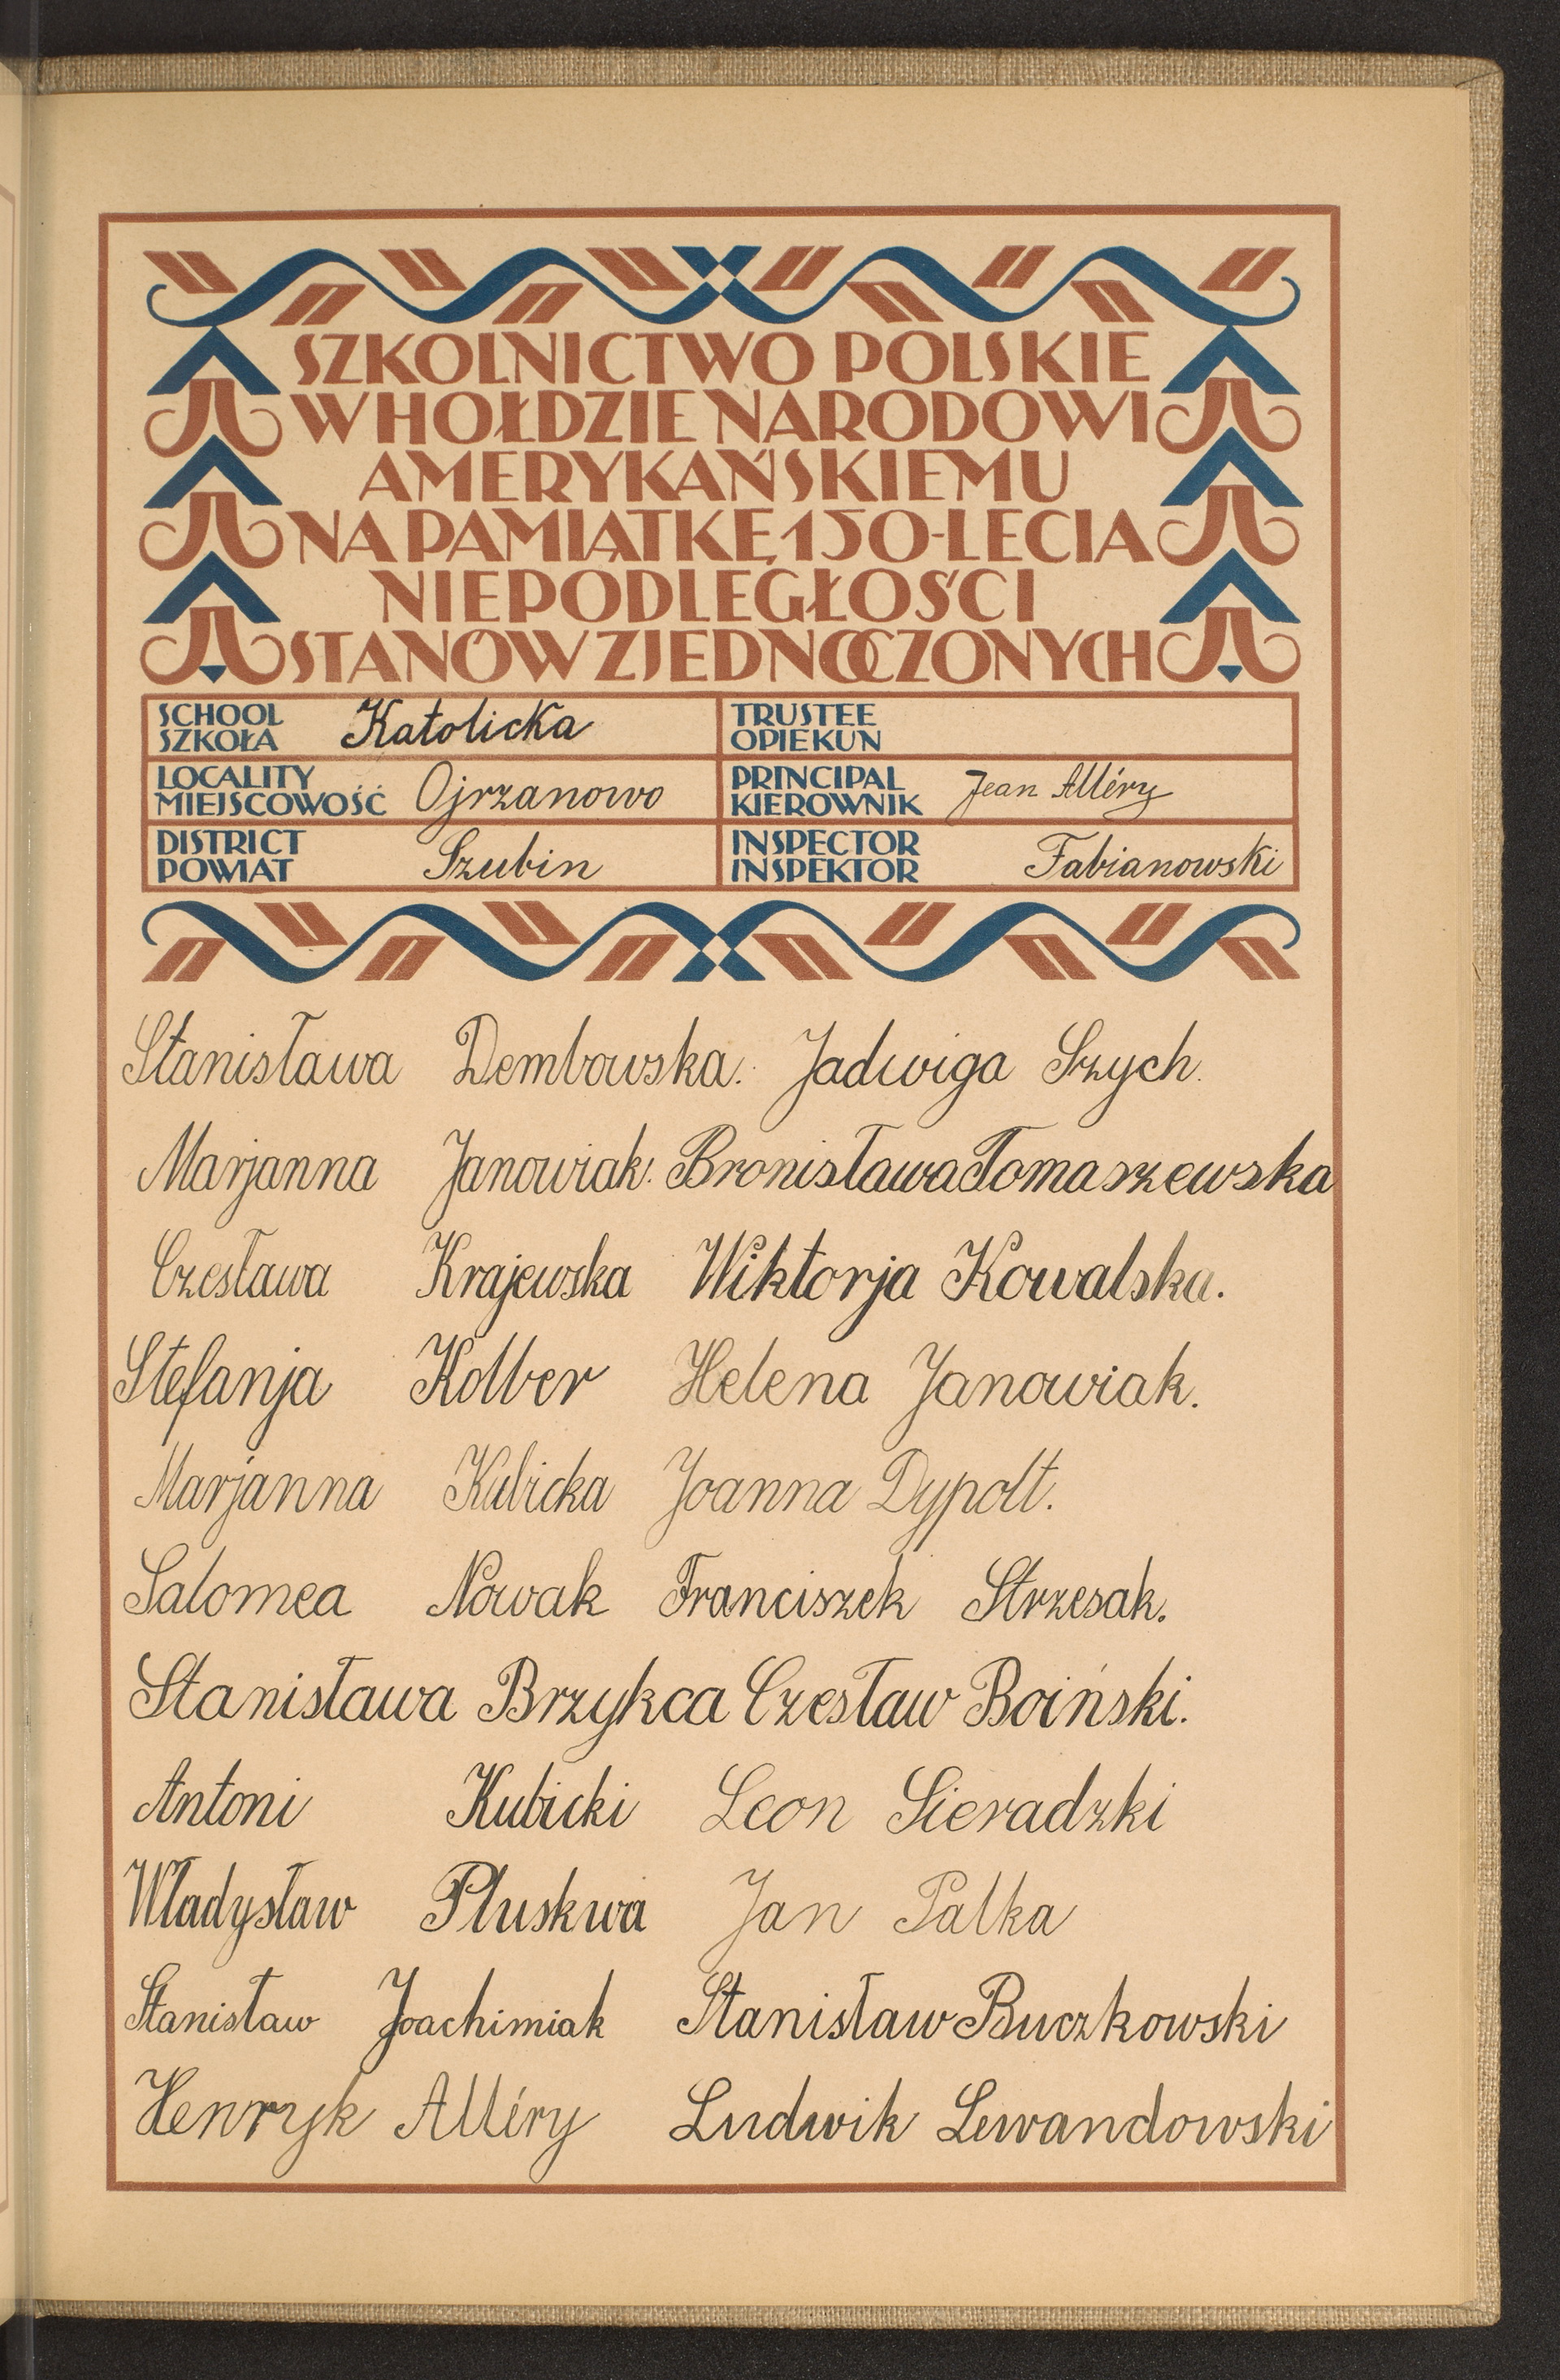 SZKOLNICTWO POLSKIE
W HOŁDZIE NARODOWI
AMERYKAŃSKIEMU
NA PAMIĄTKĘ 150-LECIA
NIEPODLEGŁOŚCI
STANÓW ZJEDNOCZONYCH
SCHOOL
SZKOŁA Katolicka
TRUSTEE
OPIEKUN
LOCALITY
MIEJSCOWOŚĆ Ojrzanowo
PRINCIPAL
KIEROWNIK Jean Alléry
DISTRICT
POWIAT Szubin
INSPECTOR
INSPEKTOR Fabianowski
Stanisława Dembowska. Jadwiga Szych.
Marjanna Janowiak. Bronisława Tomaszewska
Czesława Krajewska Wiktorja Kowalska.
Stefanja Kolber Helena Janowiak.
Marjanna Kubicka Joanna Dypolt.
Salomea Nowak Franciszek Strzesak.
Stanisława Brzykca Czesław Boiński.
Antoni Kubicki Leon Sieradzki
Władysław Pluskwa Jan Palka
Stanisław Joachimiak Stanisław Buczkowski
Henryk Alléry Ludwik Lewandowski